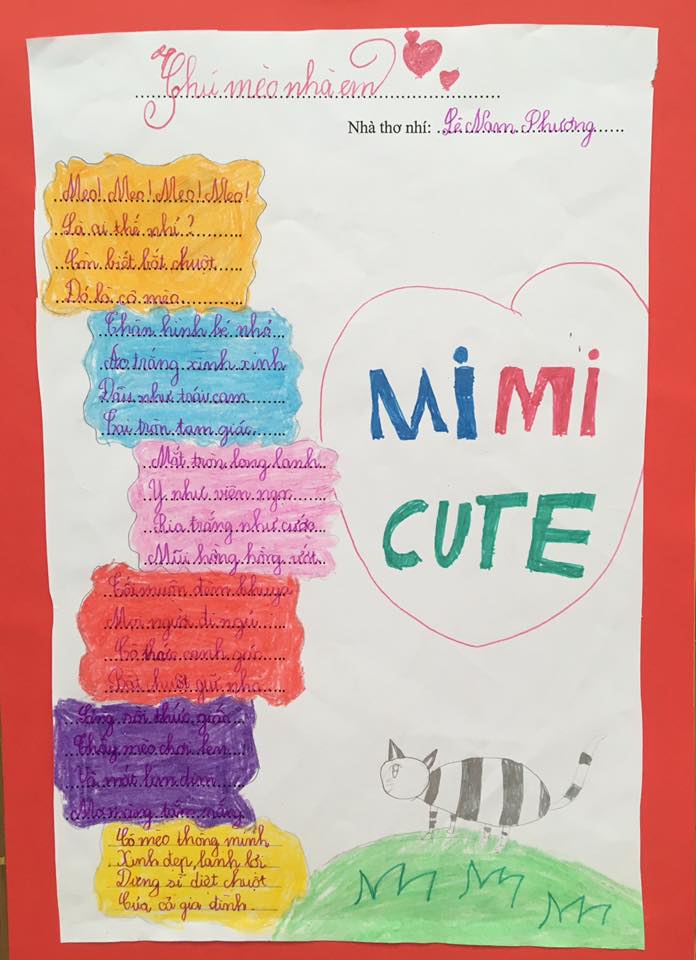 Chú mèo nhà em
Nhà thơ nhí: Lê Nam Phương
Meo! Meo! Meo! Meo!
Là ai thế nhỉ?
Còn biết bắt chuột
Đó là cô mèo
Thân hình bé nhỏ
Áo trắng xinh xinh
Đầu như trái cam
Tai tròn tam giác
Mắt tròn long lanh
Y như viên ngọc
Ria trắng như cước
Mũi hồng hồng ướt
Tối muộn đêm khuya
Mọi người đi ngủ
Cô thức canh gác
Bắt chuột giữ nhà
Sáng rồi thức giấc
Thấy mèo chơi len
Và mắt lim dim
tắm nắng
Cô mèo thông minh
Xinh đẹp, lanh lợi
Dũng sĩ diệt chuột
Của cả gia đình
MiMi
CUTE